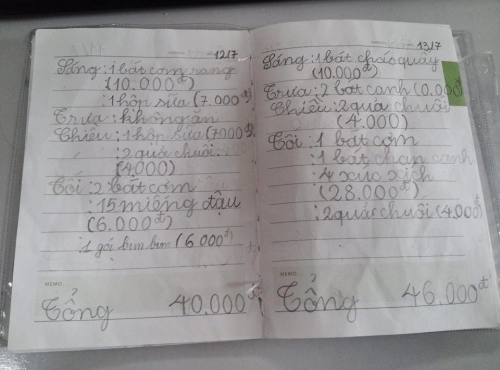 12/7
Sáng: 1 bát cơm rang
(10.000đ)
: 1 hộp sữa (7.000đ)
Trưa: không ăn
Chiều: 1 hộp sữa (7000đ)
: 2 quả chuối.
(4.000)
Tối: 2 bát cơm
: 15 miếng đậu
(6.000đ)
: 1 gói bim bim (6.000đ)
MEMO
Tổng 40.000đ
13/7
Sáng: 1 bát cháo quẩy
(10.000đ)
Trưa: 2 bát canh (0.000đ)
Chiều: 2 quả chuối
(4.000)
Tối: 1 bát cơm
: 1 bát chan canh
: 4 xúc xích
(28.000đ)
: 2 quả chuối (4.000đ)
MEMO
Tổng 46.000đ